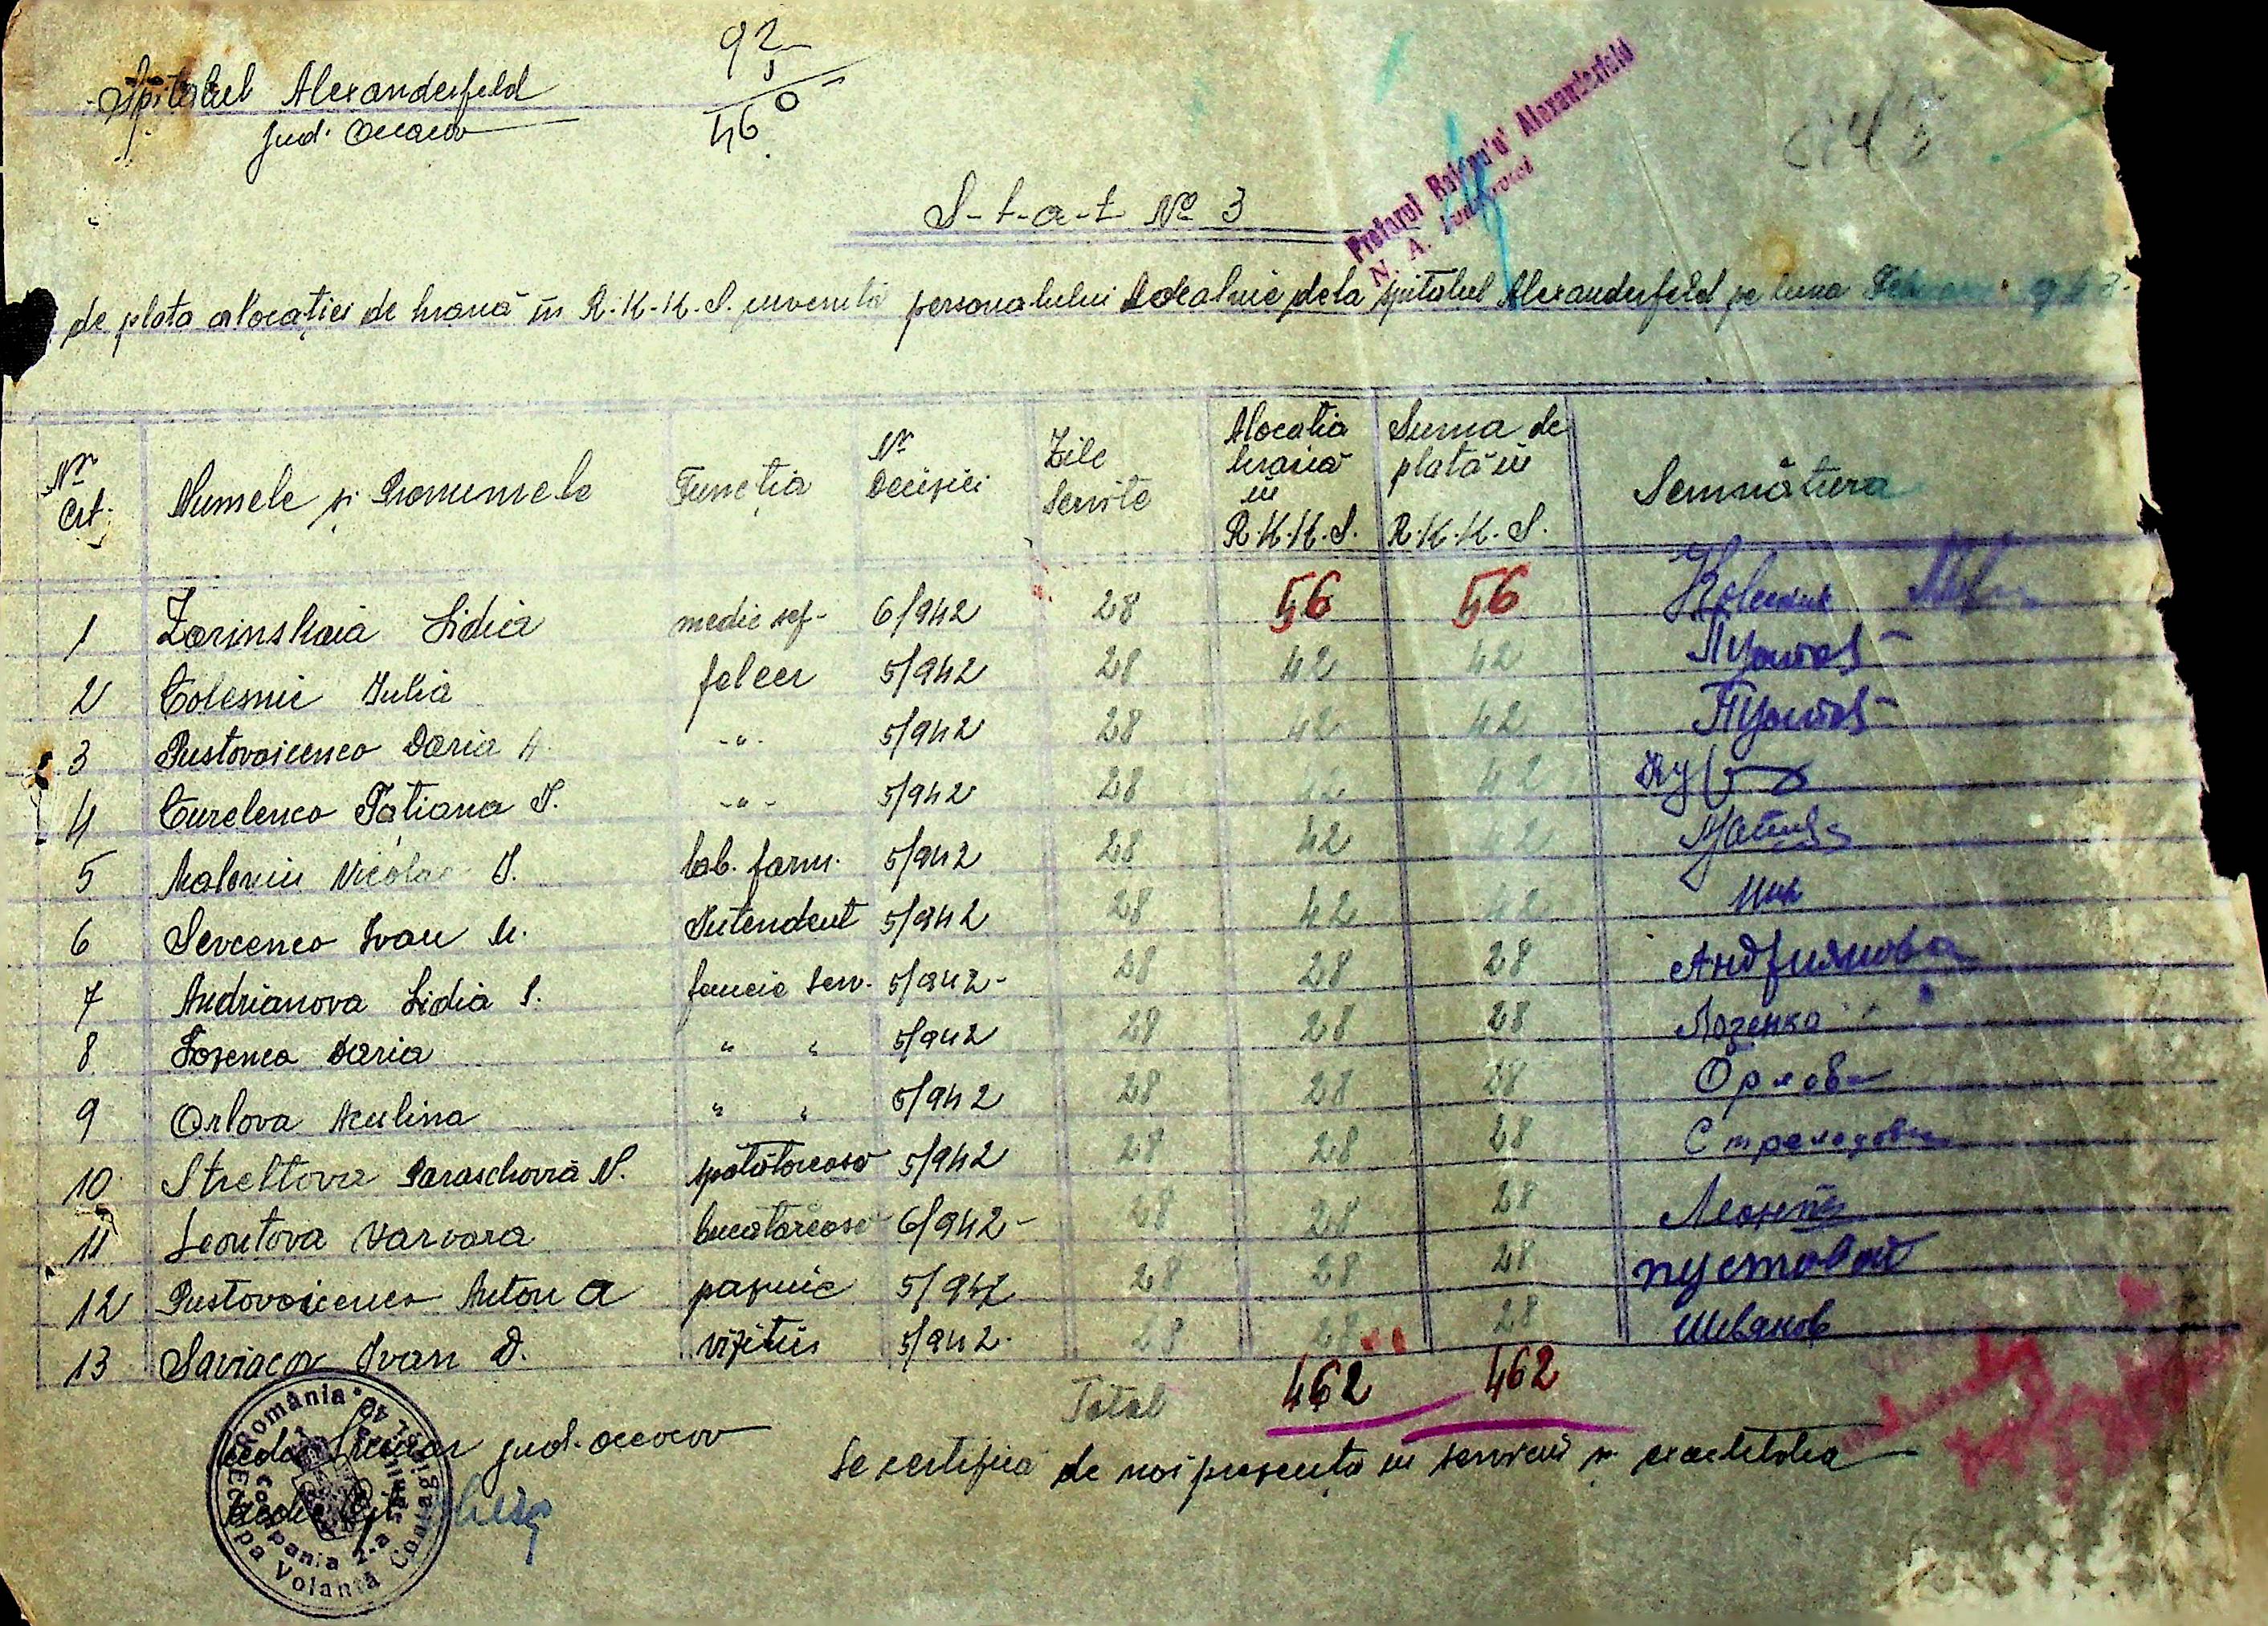 92
460
Spitalul Alexanderfeld
jud. Oceacov
Pretorul Raionului Alexanderfeld
N. A.
S-t-a-t No 3
de plata alocației de hrană în R.K.K.S. cuvenită personalului dela spitalul Alexanderfeld pe luna
Nr Crt. Numele și Pronumele Funcția Nr Deciziei Zile servite Alocatia hrană în R.K.K.S. Suma de plată în R.K.K.S. Semnătura
1 Zarinskaia Lidia medic sef- 6/942 28 56 56
2 Colesnic Iulia felcer 5/942 28 42 42
3 Pustovoicenco Daria A. -"- 5/942 28 42 42
4 Curelenco Tatiana T. -"- 5/942 28 42 42
5 Nicolae I. lab. farm. 5/942 28 42 42
6 Sevcenco Ivan M. Intendent 5/942 28 42 42
7 Andrianova Lidia S. serv. 5/942- 28 28 28 Андриянова
8 Lozenco Daria " " 5/942 28 28 28 Лозенко
9 Orlova Aculina " " 5/942 28 28 28 Орлова
10 Streltova Paraschovia N. spălătoreasă 5/942 28 28 28
11 Leontova Varvara bucatăreasă 6/942- 28 28 28
12 Pustovoicenco Anton A paznic 5/942 28 28 28 пустовой
13 Saviacov Ivan D. vizitiu 5/942. 28 28 28 Шевяков
Total 462 462
jud. Oceacov
Se certifică de noi prezența in serviciu și exactitatea
România
Compania 2-a
Echipa Volantă